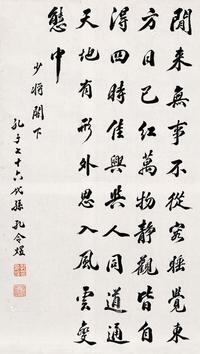 閒来無事不從容睡覺東
方日已紅萬物靜觀皆自
得四時佳興與人同道通
天地有形外思入風雲變
態中
少将閣下
孔子七十六代孫 孔令煜